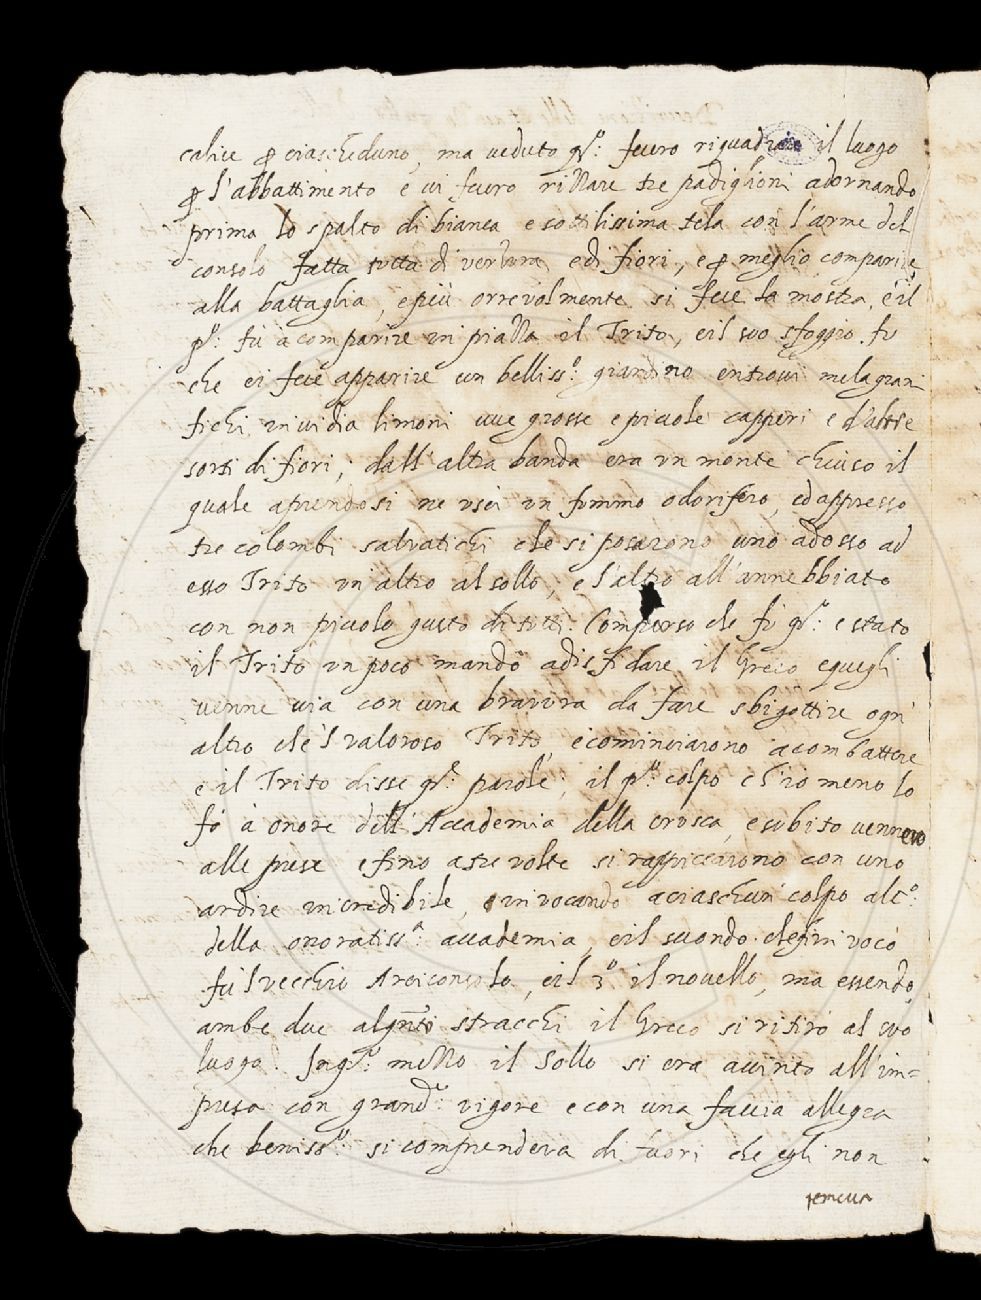 calice ꝑ ciascheduno, ma veduto qsto: fecero riquadrare il luogo
ꝑ l'abbattimento e vi fecero rizzare tre padiglioni adornando
prima lo spalto di bianca e sottilissima tela con l'arme del
consolo fatta tutta di verzura, e di fiori, e ꝑ meglio comparire
alla battaglia, e più orrevolmente si fece la mostra, e il
po: fu à comparire in piazza il Trito, e il suo sfoggio fu
che ei fece apparire un belliss.o giardino entrovi melagrani
fichi invidia limoni uve grosse e piccole capperi e d'altre
sorti di fiori, dall'altra banda era un monte chiuso il
quale aprendosi ne uscì un fummo odorifero, ed appresso
tre colombi salvatichi che si posarono uno adosso ad
esso Trito un altro al sollo, e l'altro all'annebbiato
con non piccolo gusto di tutti. Comparso che fù qo: e stato
il Trito un poco mandò a disfidare il Greco e quegli
venne via con una bravura da fare sbigottire ogn'
altro che 'l valoroso Trito, e cominciarono a combattere
e il Trito disse qe: parole, il pmo colpo ch'io meno lo
fo à onore dell'Accademia della crusca, e subito vennero
alle prese e fino a tre volte si rappiccarono con uno
ardire incredibile, e invocando a ciaschun colpo alco:
della onoratissa: accademia, e il secondo che gl'invocò
fu 'l vecchio Arciconsolo, e il 3o il novello, ma essendo
ambe due alqnto stracchi il Greco si ritirò al suo
luogo. In qo: mezzo il Sollo si era avvinto all'im=
presa con grande: vigore e con una faccia allegra
che benisso: si comprendeva di fuori che egli non
temeva